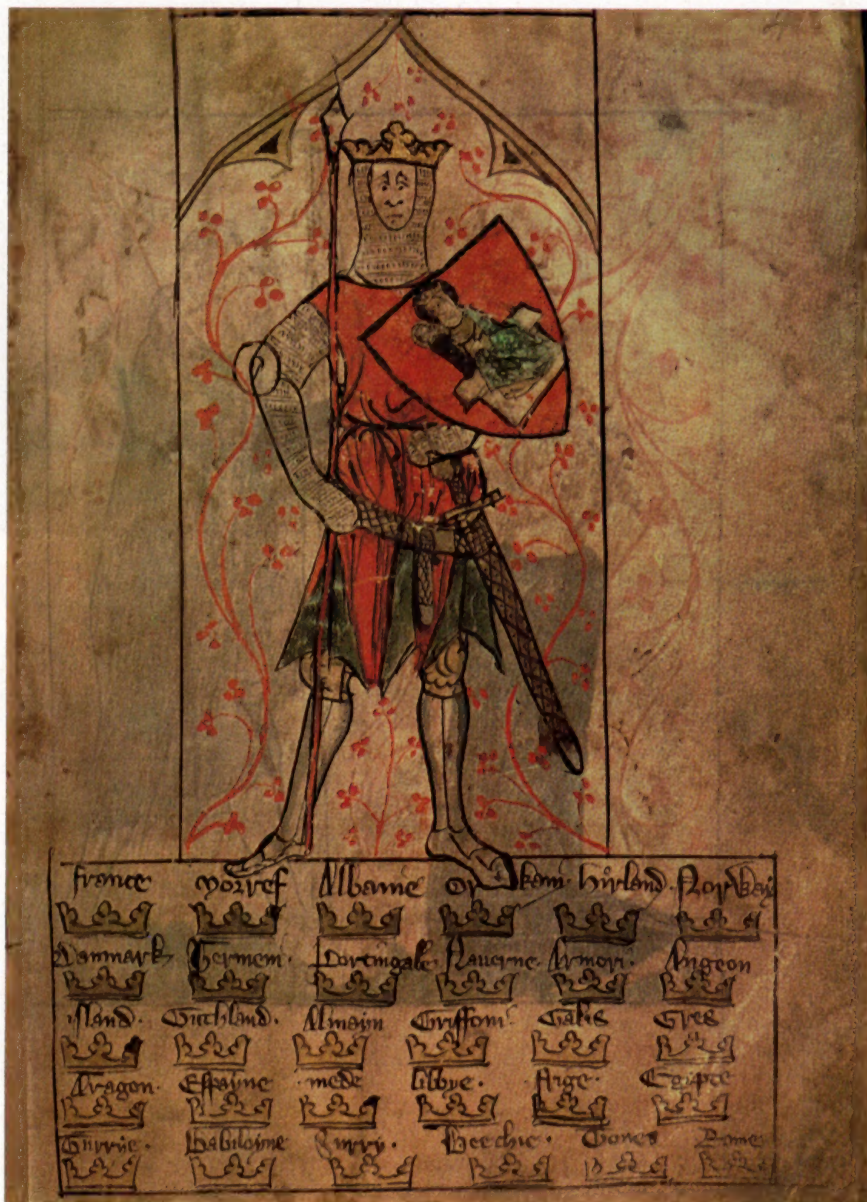 france norref Albanie Or kani Hirland Norway
Danmark hermeni Portingale Nauerne Armori Angeon
island Guthland Almayn Griffoni Galis Gres
Aragon Espayne mede libbye Frige Egipte
Surrye Babiloyne Gones